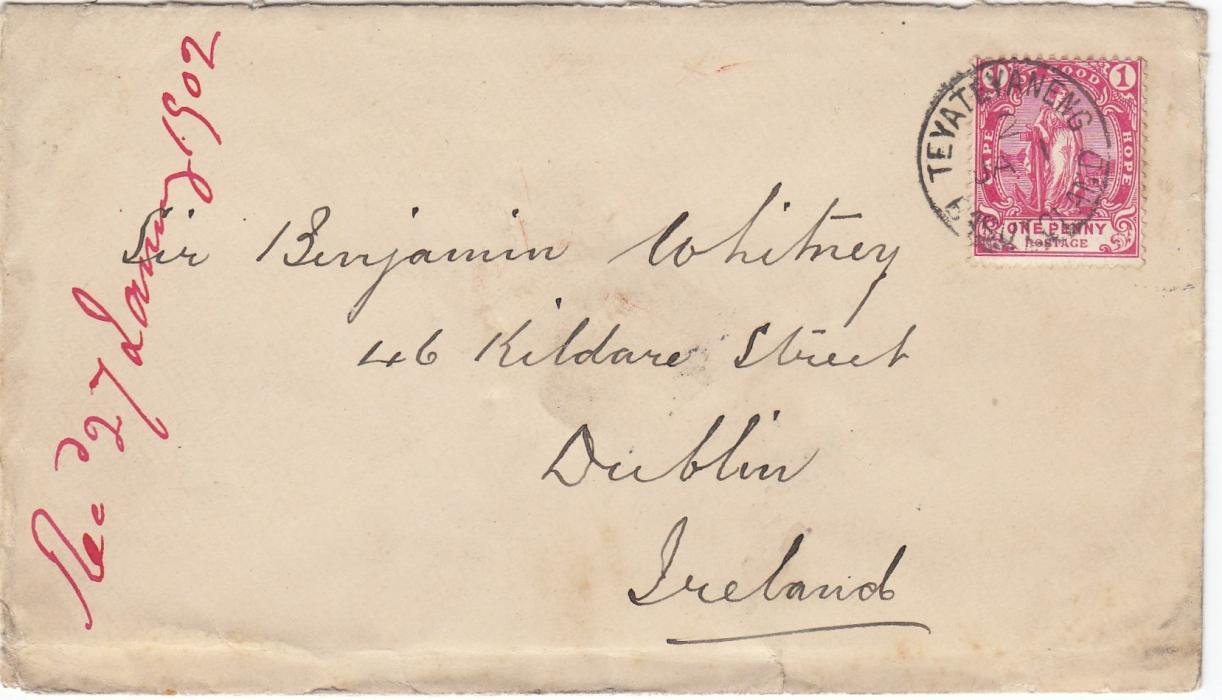 Recd 27 January 1902
TEYATEYANENG
JA 1
BASUTOLAND
OF GOOD
1
CAPE
HOPE
ONE PENNY
POSTAGE
Sir Benjamin Whitney
46 Kildare Street
Dublin
Ireland